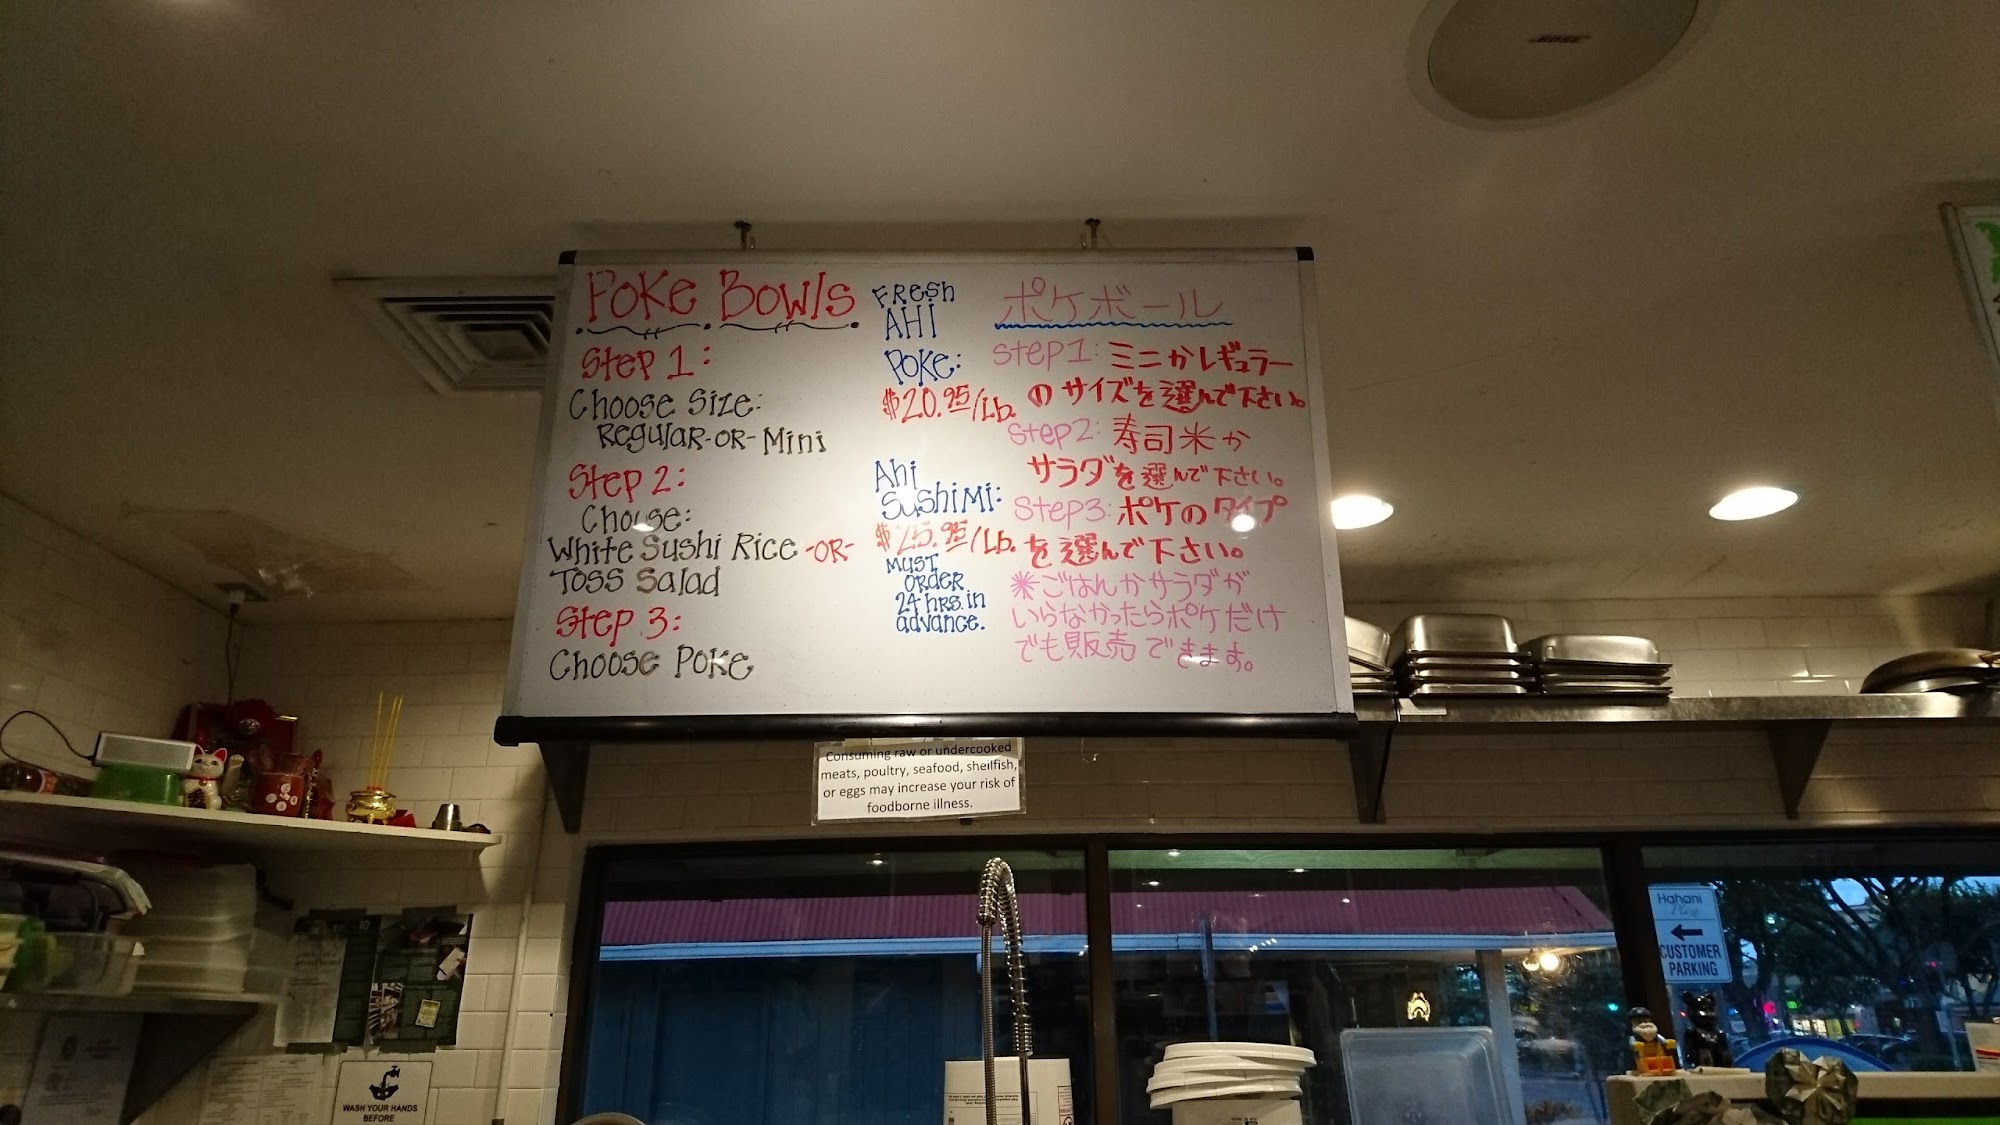 BOSE
Poke Bowls
Step 1:
Choose Size:
Regular-OR-Mini
Step 2:
Choose:
White Sushi Rice -OR-
Toss Salad
Step 3:
Choose Poke
FResh
AHI
POKE:
$20.95/Lb.
Ahi
SuShiMi:
$25.95/Lb.
MUST
ORDER
24 hrs. in
advance.
ポケボール
Step1: ミニかレギュラー
のサイズを選んで下さい。
Step2: 寿司米か
サラダを選んで下さい。
Step3: ポケのタイプ
を選んで下さい。
※ごはんかサラダが
いらなかったらポケだけ
でも販売できます。
Consuming raw or undercooked
meats, poultry, seafood, shellfish,
or eggs may increase your risk of
foodborne illness.
Hahani
Plaza
CUSTOMER
PARKING
WASH YOUR HANDS
BEFORE